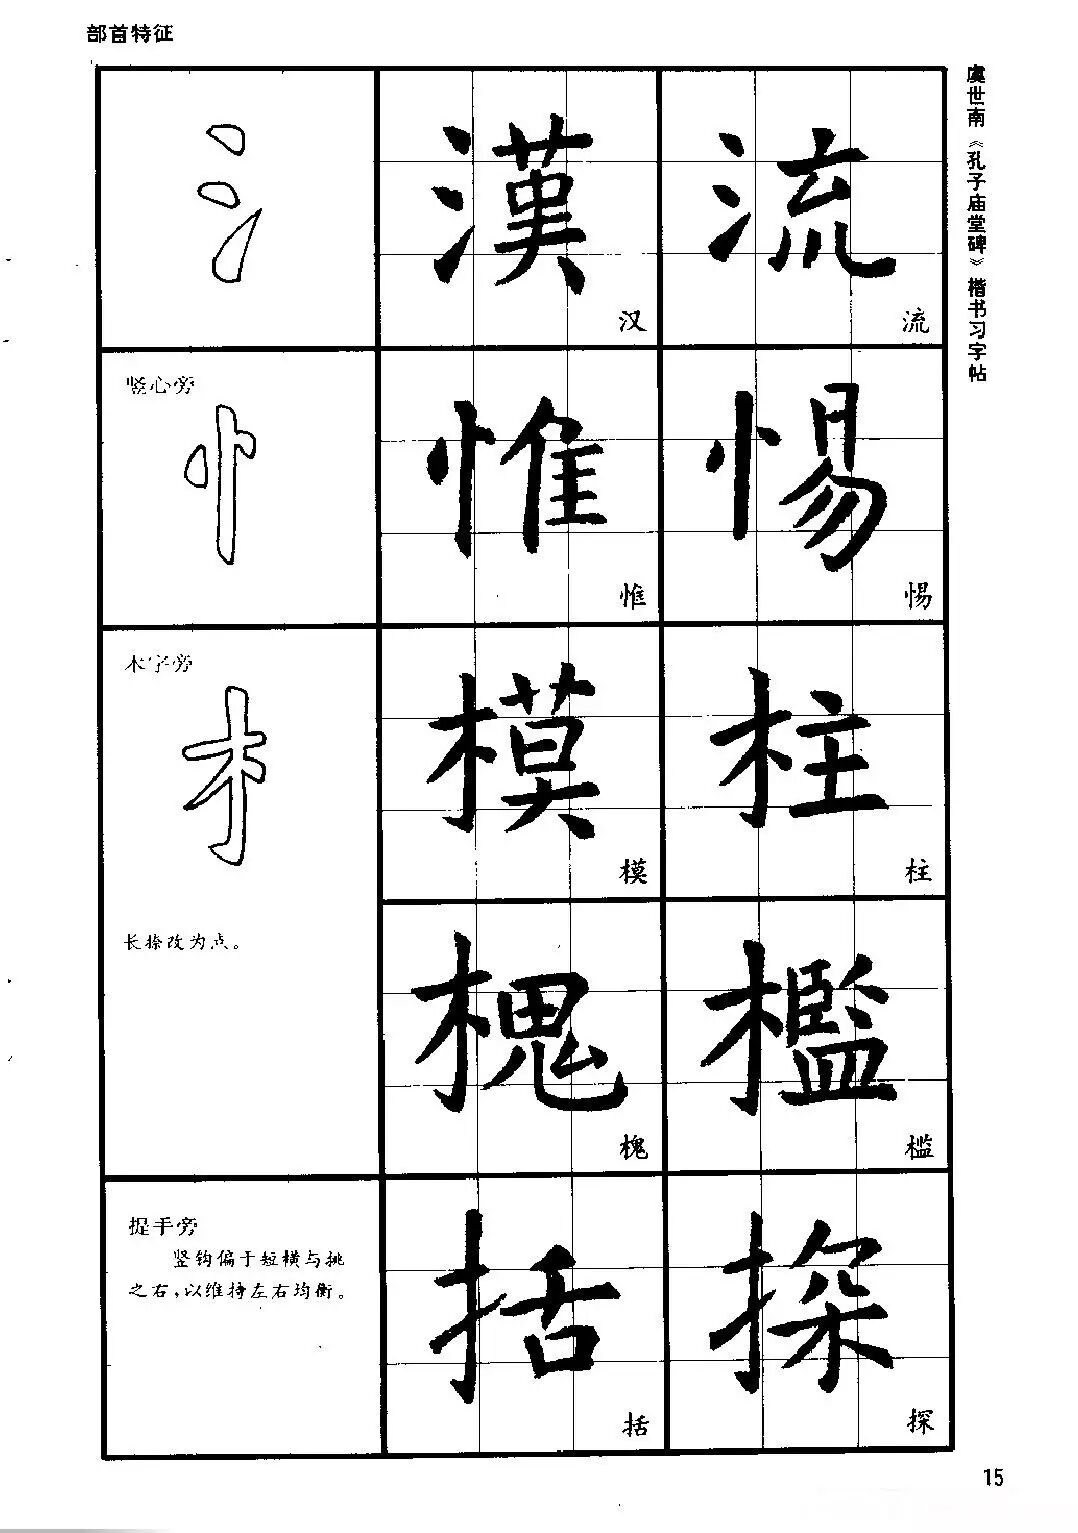 部首特征
虞世南《孔子庙堂碑》楷书习字帖
漢
汉
流
流
竖心旁
惟
惟
惕
惕
木字旁
模
模
柱
柱
长捺改为点。
槐
槐
檻
槛
提手旁
竖钩偏于短横与挑
之右，以维持左右均衡。
括
括
探
探
15